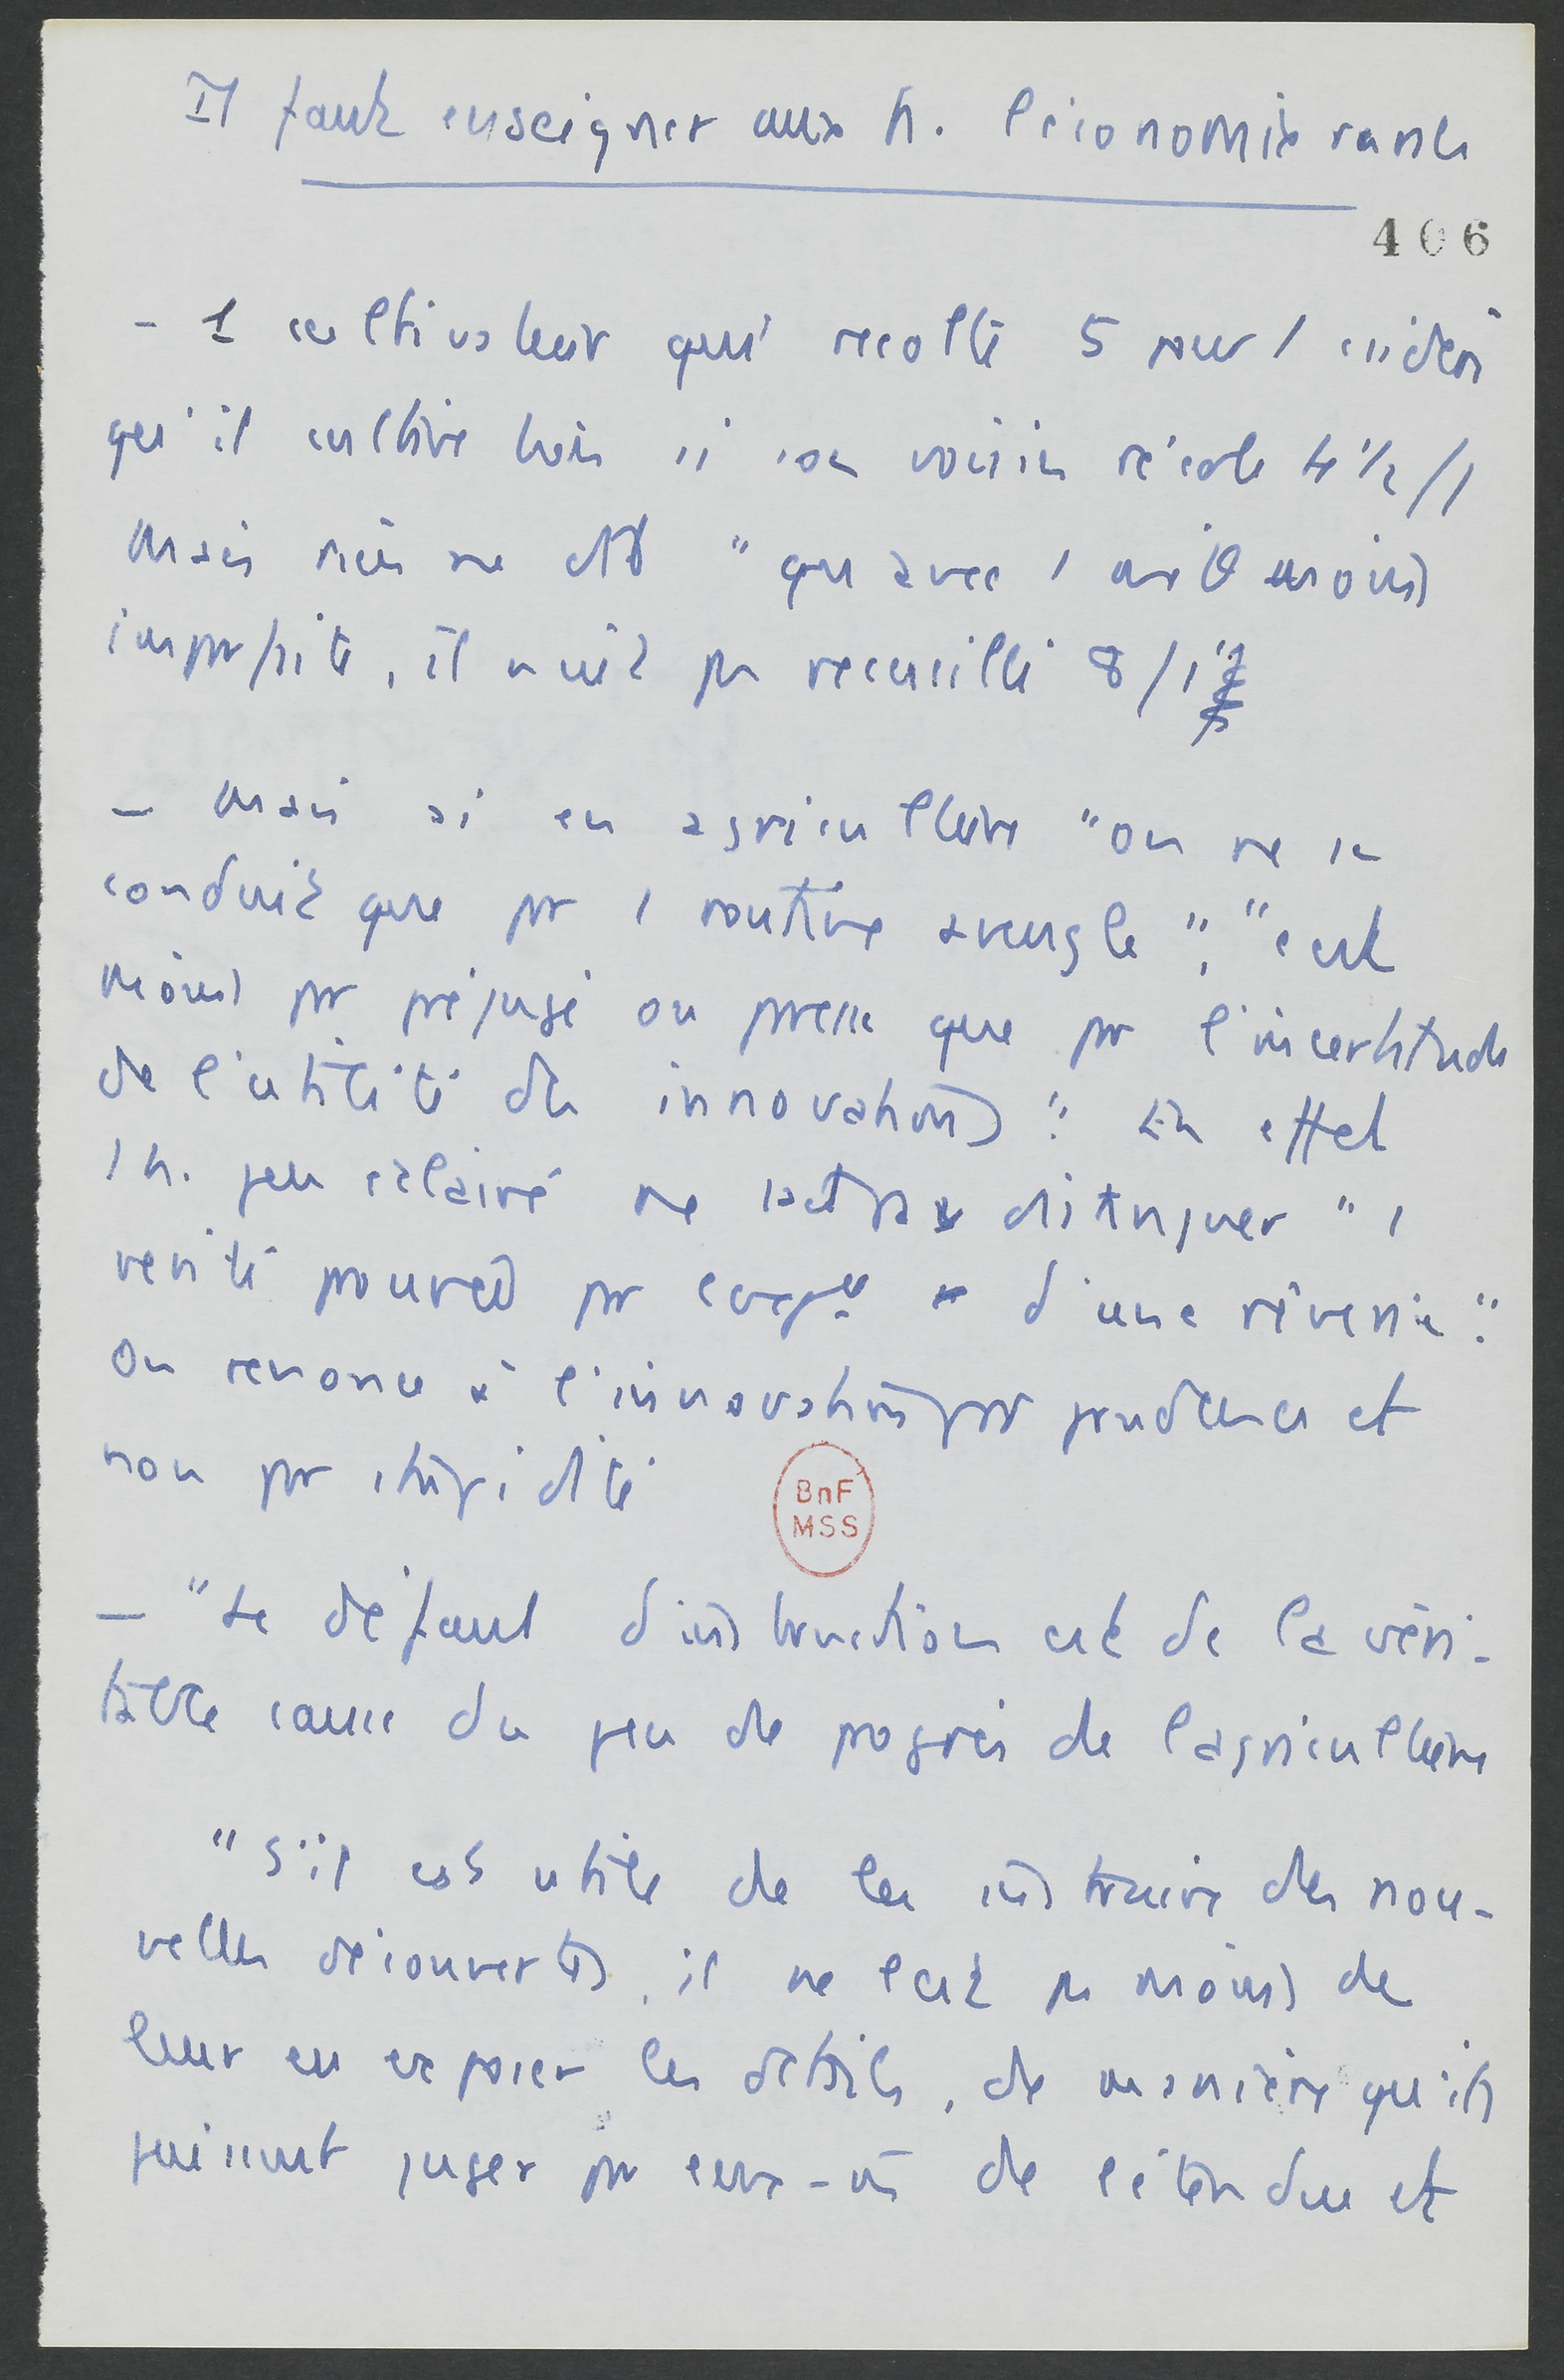 Il faut enseigner aux h. l'économie rurale
406
- 1 cultivateur qui récolte 5 pour 1 croit
qu'il cultive bien si son voisin récolte 4 1/2 /1
Mais rien ne dit "qu'avec 1 moins
imparfaite, il n'eut pas recueilli 8/1"
- Mais si en agriculture "on ne se
conduit que par 1 routine aveugle", "c'est
moins par préjugé ou paresse que par l'incertitude
de l'utilité des innovations". En effet
1 h. peu éclairé ne distinguer "1
vérité prouvée par d'une rêverie".
On renonce à l'innovation par prudence et
non par stupidité
BnF
MSS
- "Le défaut d'instruction est de la véri-
table cause du peu de progrès de l'agriculture
"S'il est utile de les instruire des nou-
velles découvertes, il ne l'est pas moins de
leur en exposer les détails, de manière qu'ils
puissent juger par eux-m de l'étendue et